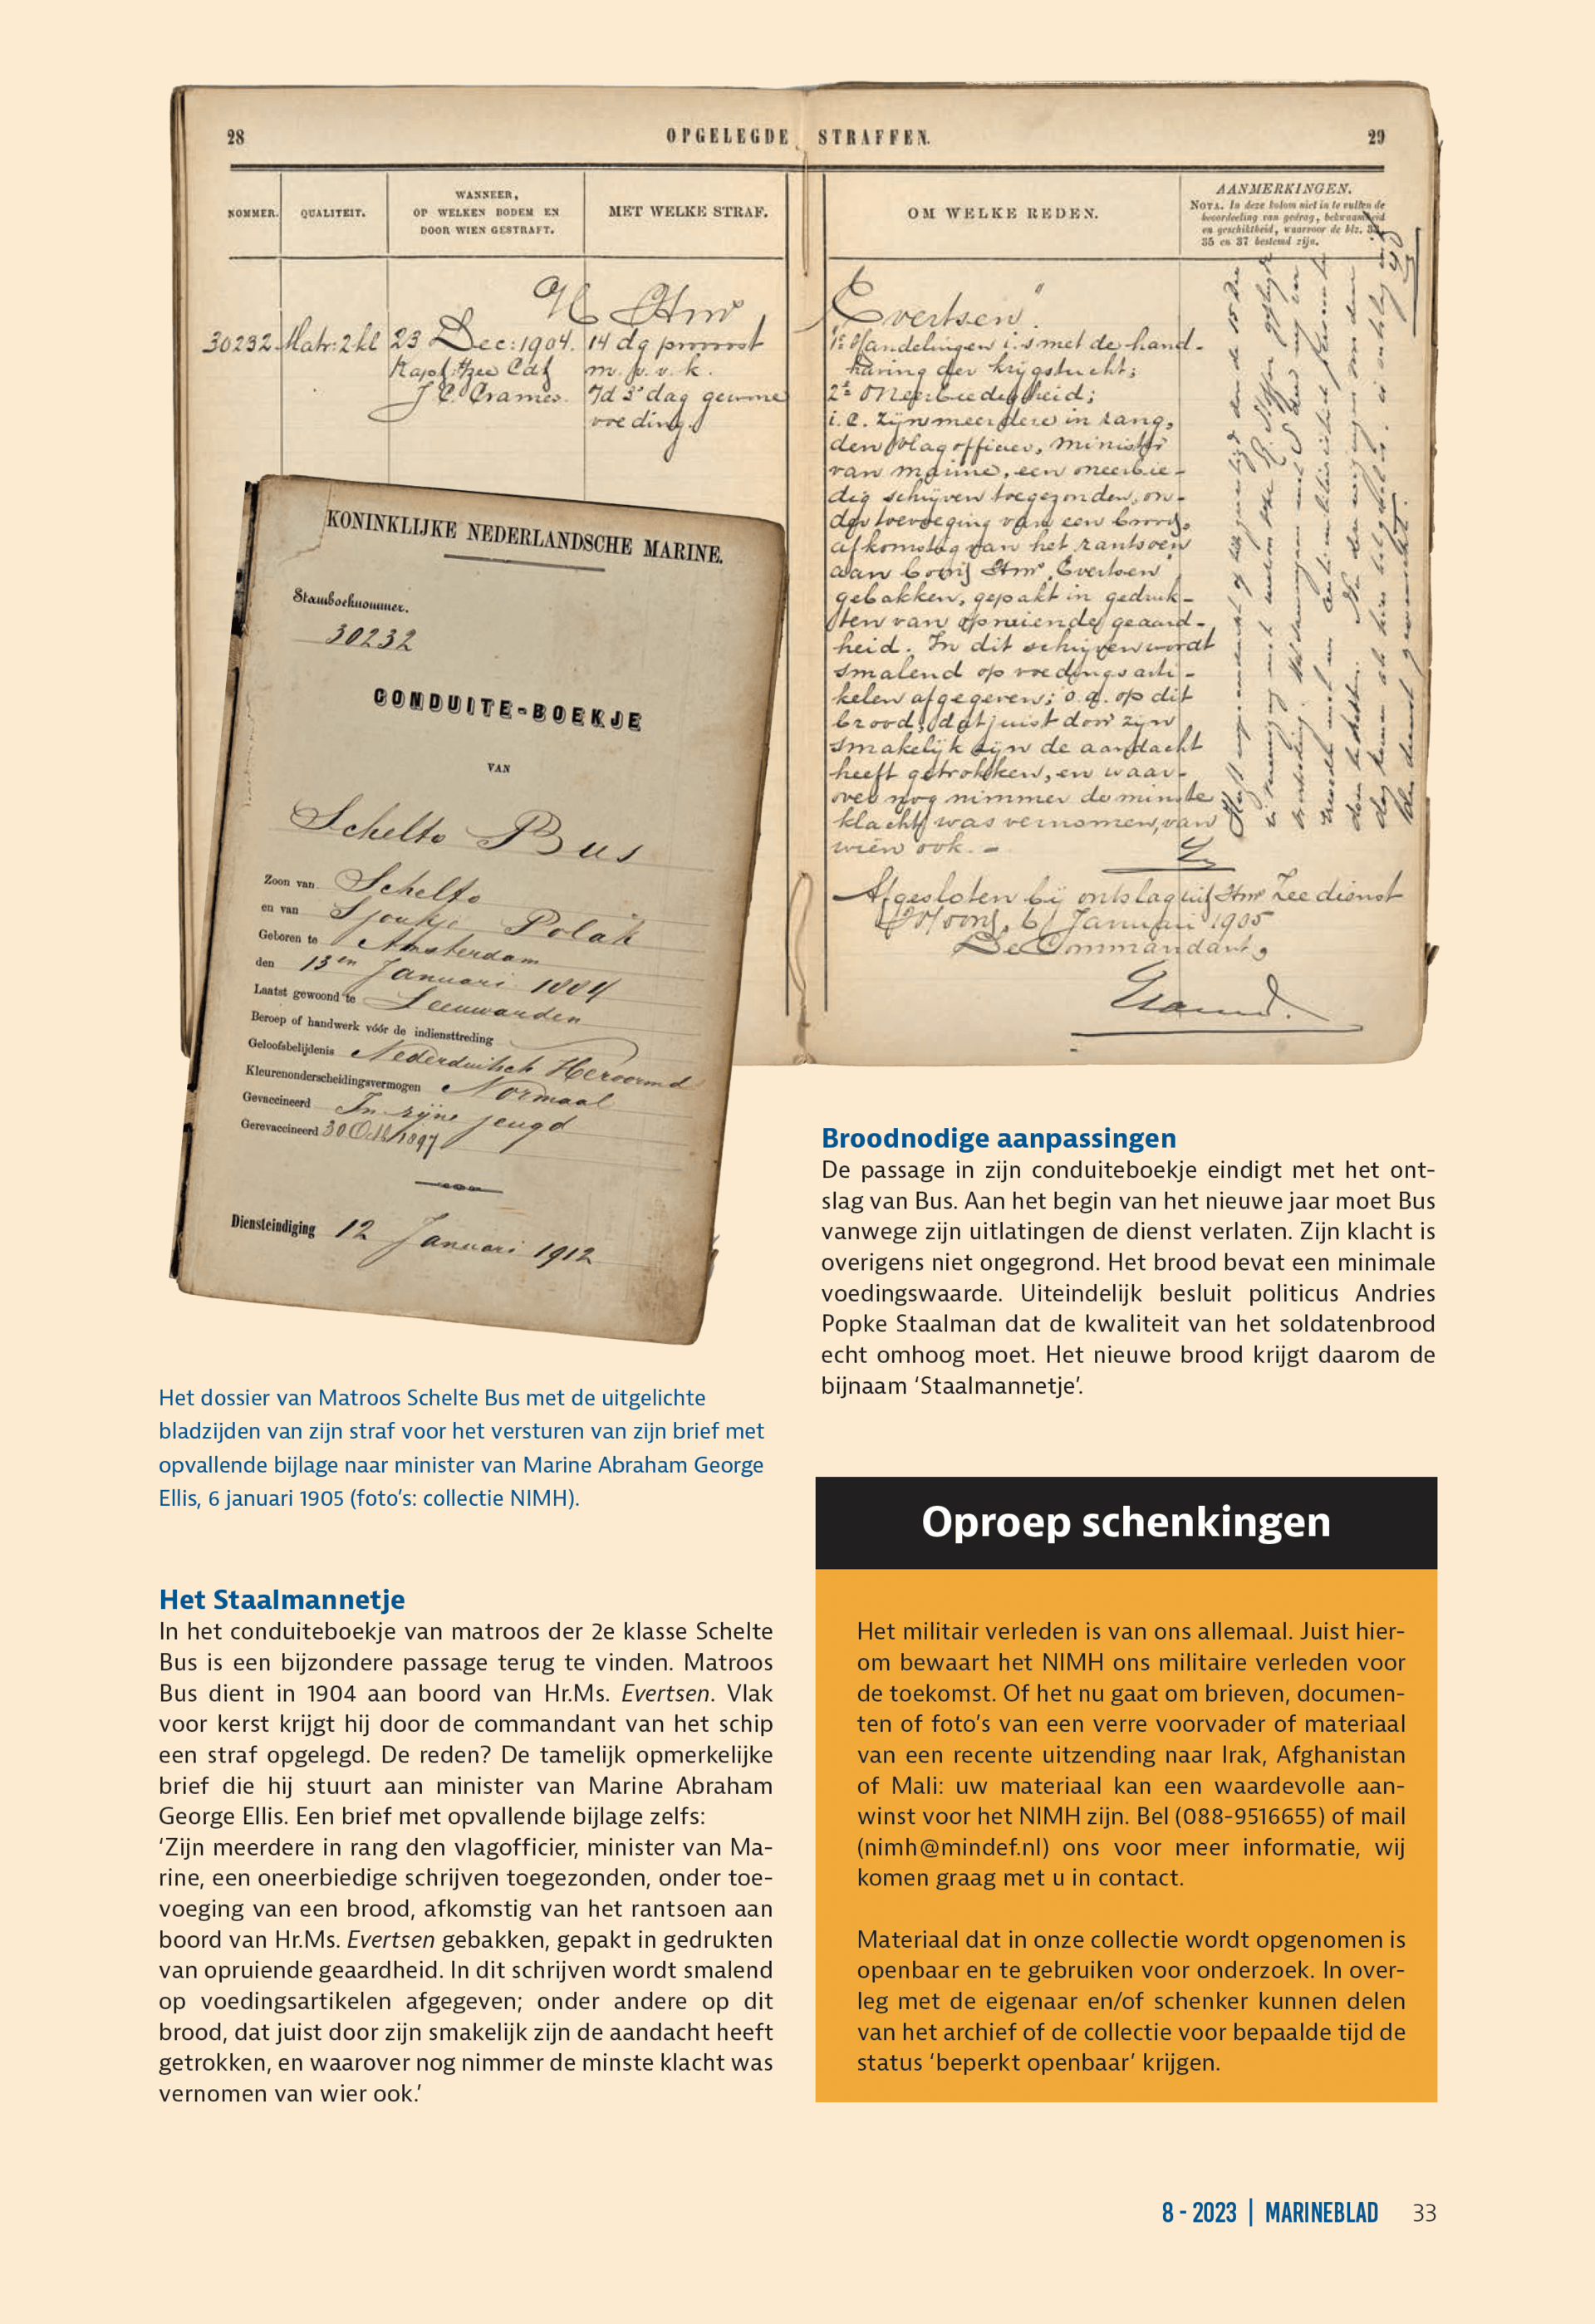 28
OPGELEGDE STRAFFEN.
29
NOMMER.
QUALITEIT.
WANNEER,
OP WELKEN BODEM EN
DOOR WIEN GESTRAFT.
MET WELKE STRAF.
OM WELKE REDEN.
AANMERKINGEN.
NOTA. In deze kolom niet in te vullen de
beoordeeling van gedrag, bekwaamheid
en geschiktheid, waarvoor de blz. 33,
35 en 37 bestemd zijn.
Evertsen".
30232 Matr: 2 kl 23 Dec: 1904. 14 dg provoost
m. v. v. k.
7d 3e dag gewone
voeding.
1e Handelingen i. s met de hand-
having der krijgstucht;
2e Oneerbiedigheid;
i. c. zijn meerdere in rang,
den vlagofficier, minister
van marine, een oneerbie-
dig schrijven toegezonden, on-
der toevoeging van een brood,
afkomstig van het rantsoen
aan boord Hrms "Evertsen"
gebakken, gepakt in gedruk-
ten van opruiende geaard-
heid. In dit schrijven wordt
smalend op voedingsarti-
kelen afgegeven; o. a. op dit
brood, dat juist door zijn
smakelijk zijn de aandacht
heeft getrokken, en waar-
over nog nimmer de minste
klacht was vernomen, van
wien ook. -
Afgesloten bij ontslag uit Hrms Zeedienst
6 Januari 1905
De Commandant,
KONINKLIJKE NEDERLANDSCHE MARINE.
Stamboeknummer.
30232
CONDUITE-BOEKJE
VAN
Schelte Bus
Zoon van Schelte
en van Sjoukje Polak
Geboren te Amsterdam
den 13en Januari 1884
Laatst gewoond te Leeuwarden
Beroep of handwerk vóór de indiensttreding
Geloofsbelijdenis Nederduitsch Hervormd
Kleurenonderscheidingsvermogen Normaal
Gevaccineerd In zijne jeugd
Gerevaccineerd 30 Oct 1897
Diensteindiging 12 Januari 1912
Het dossier van Matroos Schelte Bus met de uitgelichte
bladzijden van zijn straf voor het versturen van zijn brief met
opvallende bijlage naar minister van Marine Abraham George
Ellis, 6 januari 1905 (foto's: collectie NIMH).
Het Staalmannetje
In het conduiteboekje van matroos der 2e klasse Schelte
Bus is een bijzondere passage terug te vinden. Matroos
Bus dient in 1904 aan boord van Hr.Ms. Evertsen. Vlak
voor kerst krijgt hij door de commandant van het schip
een straf opgelegd. De reden? De tamelijk opmerkelijke
brief die hij stuurt aan minister van Marine Abraham
George Ellis. Een brief met opvallende bijlage zelfs:
‘Zijn meerdere in rang den vlagofficier, minister van Ma-
rine, een oneerbiedige schrijven toegezonden, onder toe-
voeging van een brood, afkomstig van het rantsoen aan
boord van Hr.Ms. Evertsen gebakken, gepakt in gedrukten
van opruiende geaardheid. In dit schrijven wordt smalend
op voedingsartikelen afgegeven; onder andere op dit
brood, dat juist door zijn smakelijk zijn de aandacht heeft
getrokken, en waarover nog nimmer de minste klacht was
vernomen van wier ook.’
Broodnodige aanpassingen
De passage in zijn conduiteboekje eindigt met het ont-
slag van Bus. Aan het begin van het nieuwe jaar moet Bus
vanwege zijn uitlatingen de dienst verlaten. Zijn klacht is
overigens niet ongegrond. Het brood bevat een minimale
voedingswaarde. Uiteindelijk besluit politicus Andries
Popke Staalman dat de kwaliteit van het soldatenbrood
echt omhoog moet. Het nieuwe brood krijgt daarom de
bijnaam ‘Staalmannetje’.
Oproep schenkingen
Het militair verleden is van ons allemaal. Juist hier-
om bewaart het NIMH ons militaire verleden voor
de toekomst. Of het nu gaat om brieven, documen-
ten of foto’s van een verre voorvader of materiaal
van een recente uitzending naar Irak, Afghanistan
of Mali: uw materiaal kan een waardevolle aan-
winst voor het NIMH zijn. Bel (088-9516655) of mail
(nimh@mindef.nl) ons voor meer informatie, wij
komen graag met u in contact.
Materiaal dat in onze collectie wordt opgenomen is
openbaar en te gebruiken voor onderzoek. In over-
leg met de eigenaar en/of schenker kunnen delen
van het archief of de collectie voor bepaalde tijd de
status ‘beperkt openbaar’ krijgen.
8 - 2023 | MARINEBLAD 33